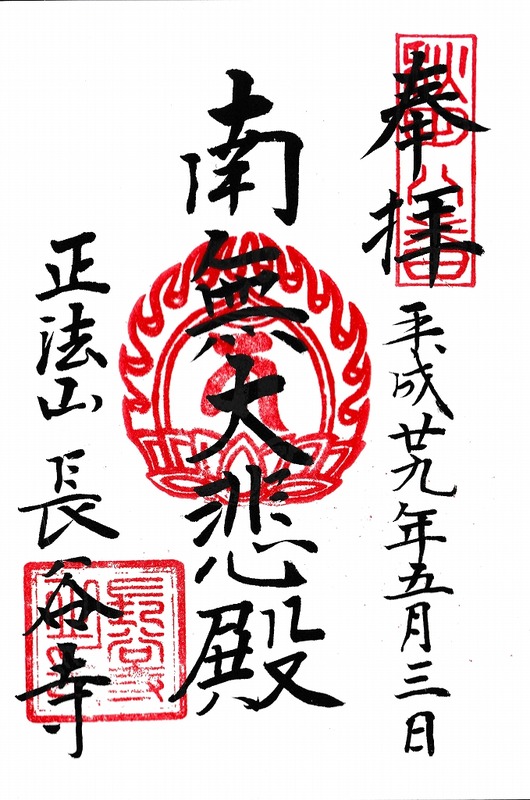 奉拝
平成廿九年五月三日
南無大悲殿
正法山 長谷寺